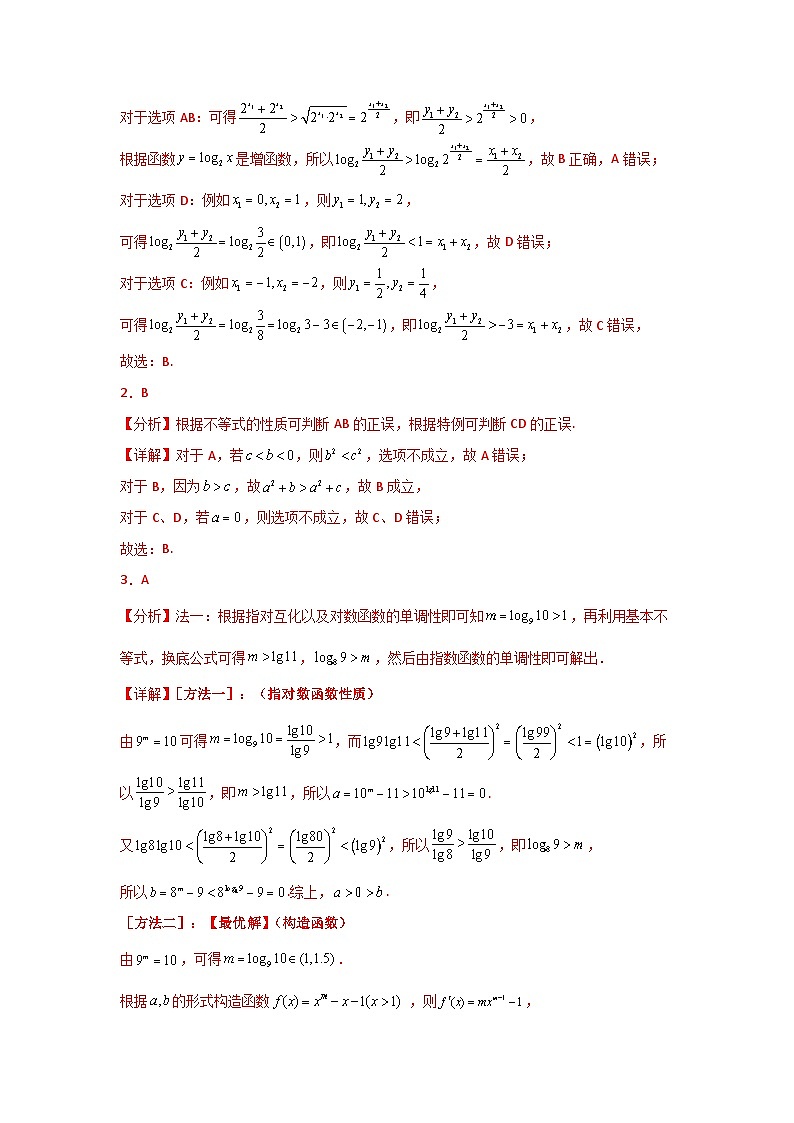 对于选项 AB：可得 $\frac{2^{x_1}+2^{x_2}}{2}>\sqrt{2^{x_1}\cdot 2^{x_2}}=2^{\frac{x_1+x_2}{2}}$，即 $\frac{y_1+y_2}{2}>2^{\frac{x_1+x_2}{2}}>0$，
根据函数 $y=\log_2 x$ 是增函数，所以 $\log_2\frac{y_1+y_2}{2}>\log_2 2^{\frac{x_1+x_2}{2}}=\frac{x_1+x_2}{2}$，故 B 正确，A 错误；
对于选项 D：例如 $x_1=0,x_2=1$，则 $y_1=1,y_2=2$，
可得 $\log_2\frac{y_1+y_2}{2}=\log_2\frac{3}{2}\in(0,1)$，即 $\log_2\frac{y_1+y_2}{2}<1=x_1+x_2$，故 D 错误；
对于选项 C：例如 $x_1=-1,x_2=-2$，则 $y_1=\frac{1}{2},y_2=\frac{1}{4}$，
可得 $\log_2\frac{y_1+y_2}{2}=\log_2\frac{3}{8}=\log_2 3-3\in(-2,-1)$，即 $\log_2\frac{y_1+y_2}{2}>-3=x_1+x_2$，故 C 错误，
故选：B.
2．B
【分析】根据不等式的性质可判断 AB 的正误，根据特例可判断 CD 的正误.
【详解】对于 A，若 $c<b<0$，则 $b^2<c^2$，选项不成立，故 A 错误；
对于 B，因为 $b>c$，故 $a^2+b>a^2+c$，故 B 成立，
对于 C、D，若 $a=0$，则选项不成立，故 C、D 错误；
故选：B.
3．A
【分析】法一：根据指对互化以及对数函数的单调性即可知 $m=\log_9 10>1$，再利用基本不
等式，换底公式可得 $m>\lg 11$，$\log_8 9>m$，然后由指数函数的单调性即可解出．
【详解】[方法一]：（指对数函数性质）
由 $9^m=10$ 可得 $m=\log_9 10=\frac{\lg 10}{\lg 9}>1$，而 $\lg 9\lg 11<\left(\frac{\lg 9+\lg 11}{2}\right)^2=\left(\frac{\lg 99}{2}\right)^2<1=(\lg 10)^2$，所
以 $\frac{\lg 10}{\lg 9}>\frac{\lg 11}{\lg 10}$，即 $m>\lg 11$，所以 $a=10^m-11>10^{\lg 11}-11=0$．
又 $\lg 8\lg 10<\left(\frac{\lg 8+\lg 10}{2}\right)^2=\left(\frac{\lg 80}{2}\right)^2<(\lg 9)^2$，所以 $\frac{\lg 9}{\lg 8}>\frac{\lg 10}{\lg 9}$，即 $\log_8 9>m$，
所以 $b=8^m-9<8^{\log_8 9}-9=0$.综上，$a>0>b$．
[方法二]：【最优解】（构造函数）
由 $9^m=10$，可得 $m=\log_9 10\in(1,1.5)$．
根据 $a,b$ 的形式构造函数 $f(x)=x^m-x-1(x>1)$ ，则 $f'(x)=mx^{m-1}-1$，